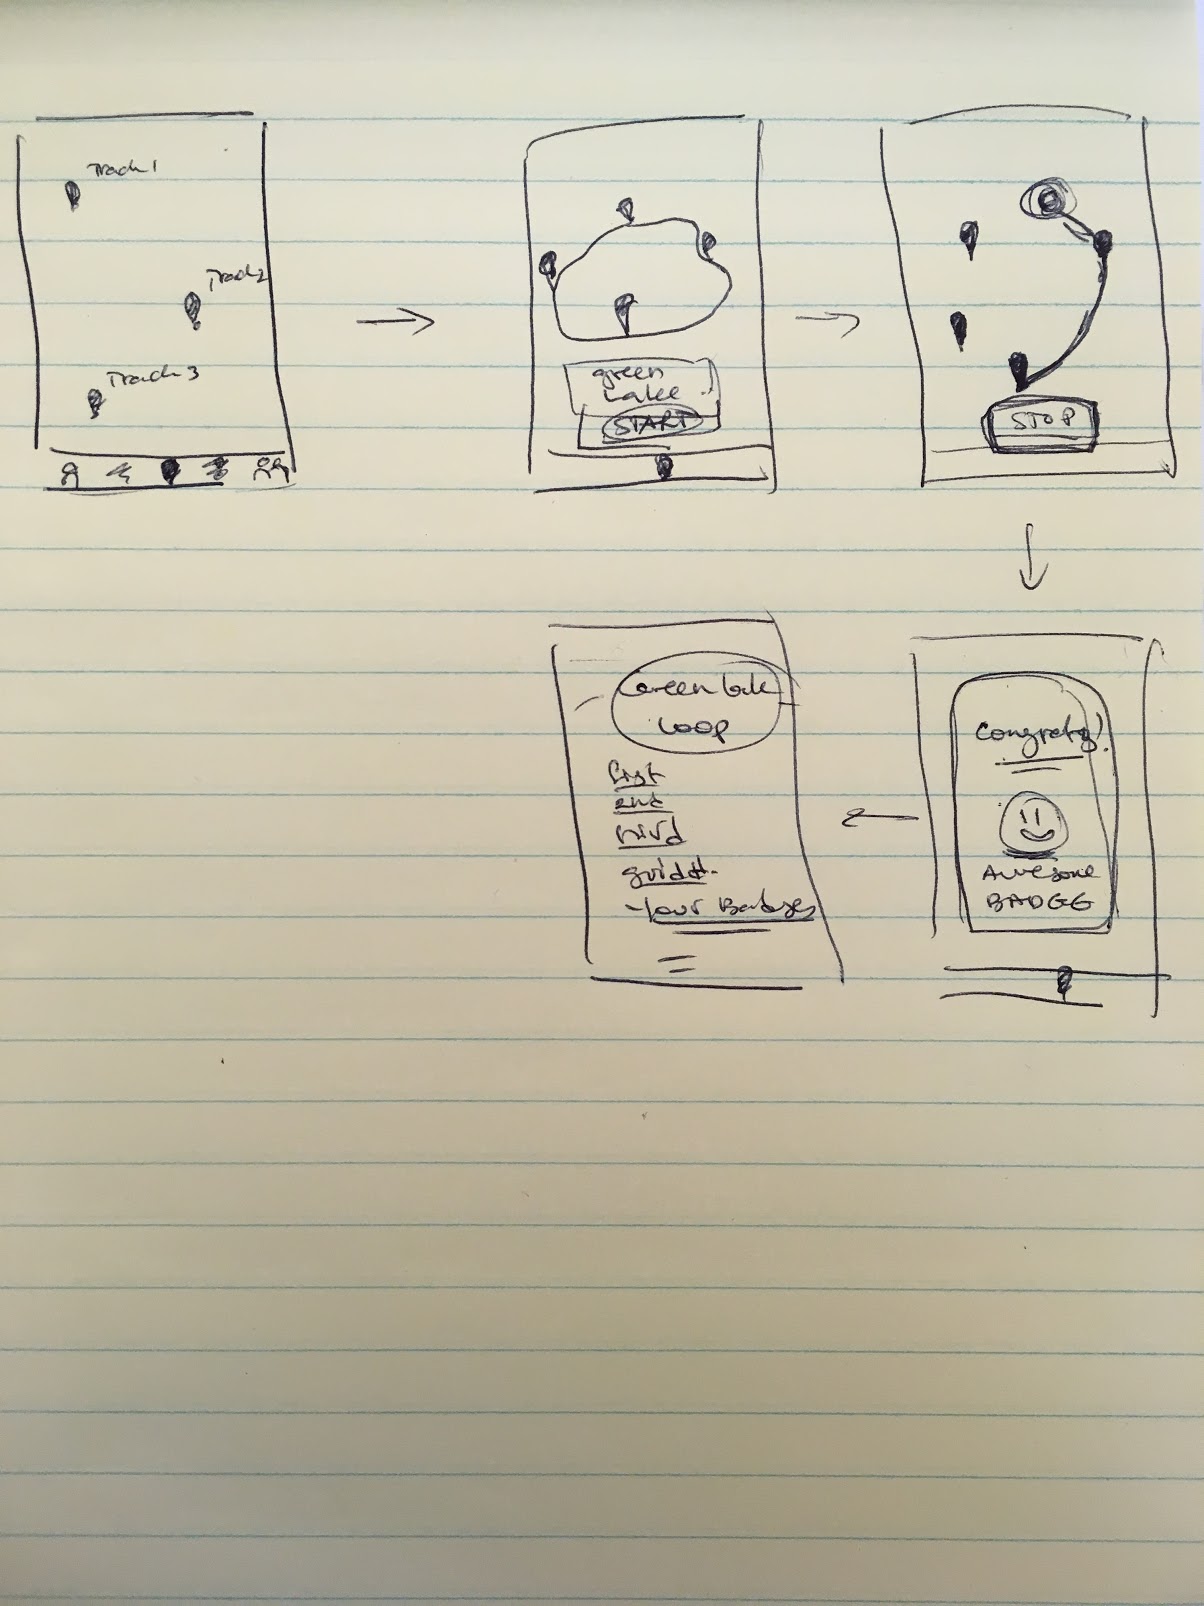 Track 1
Track 2
Track 3
green
Lake
START
STOP
Congrats!
Awesome
BADGE
Green Lake
Loop
first
2nd
third
Your Badges